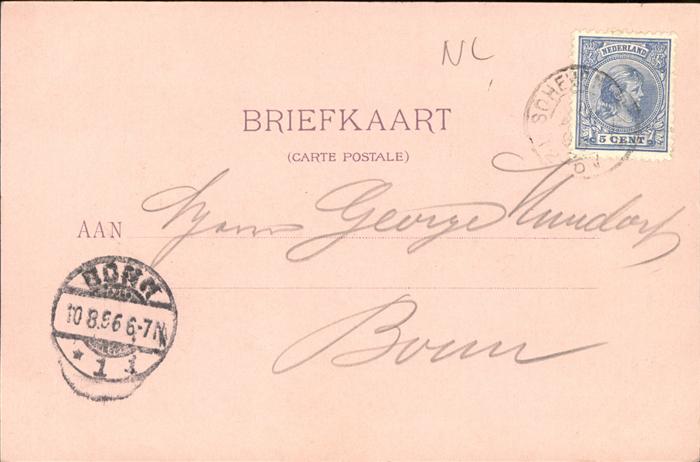 NL
NEDERLAND
5 CENT
BRIEFKAART
(CARTE POSTALE)
AAN
George
Bonn
BONN
10 8.96 6-7N
* 1 1